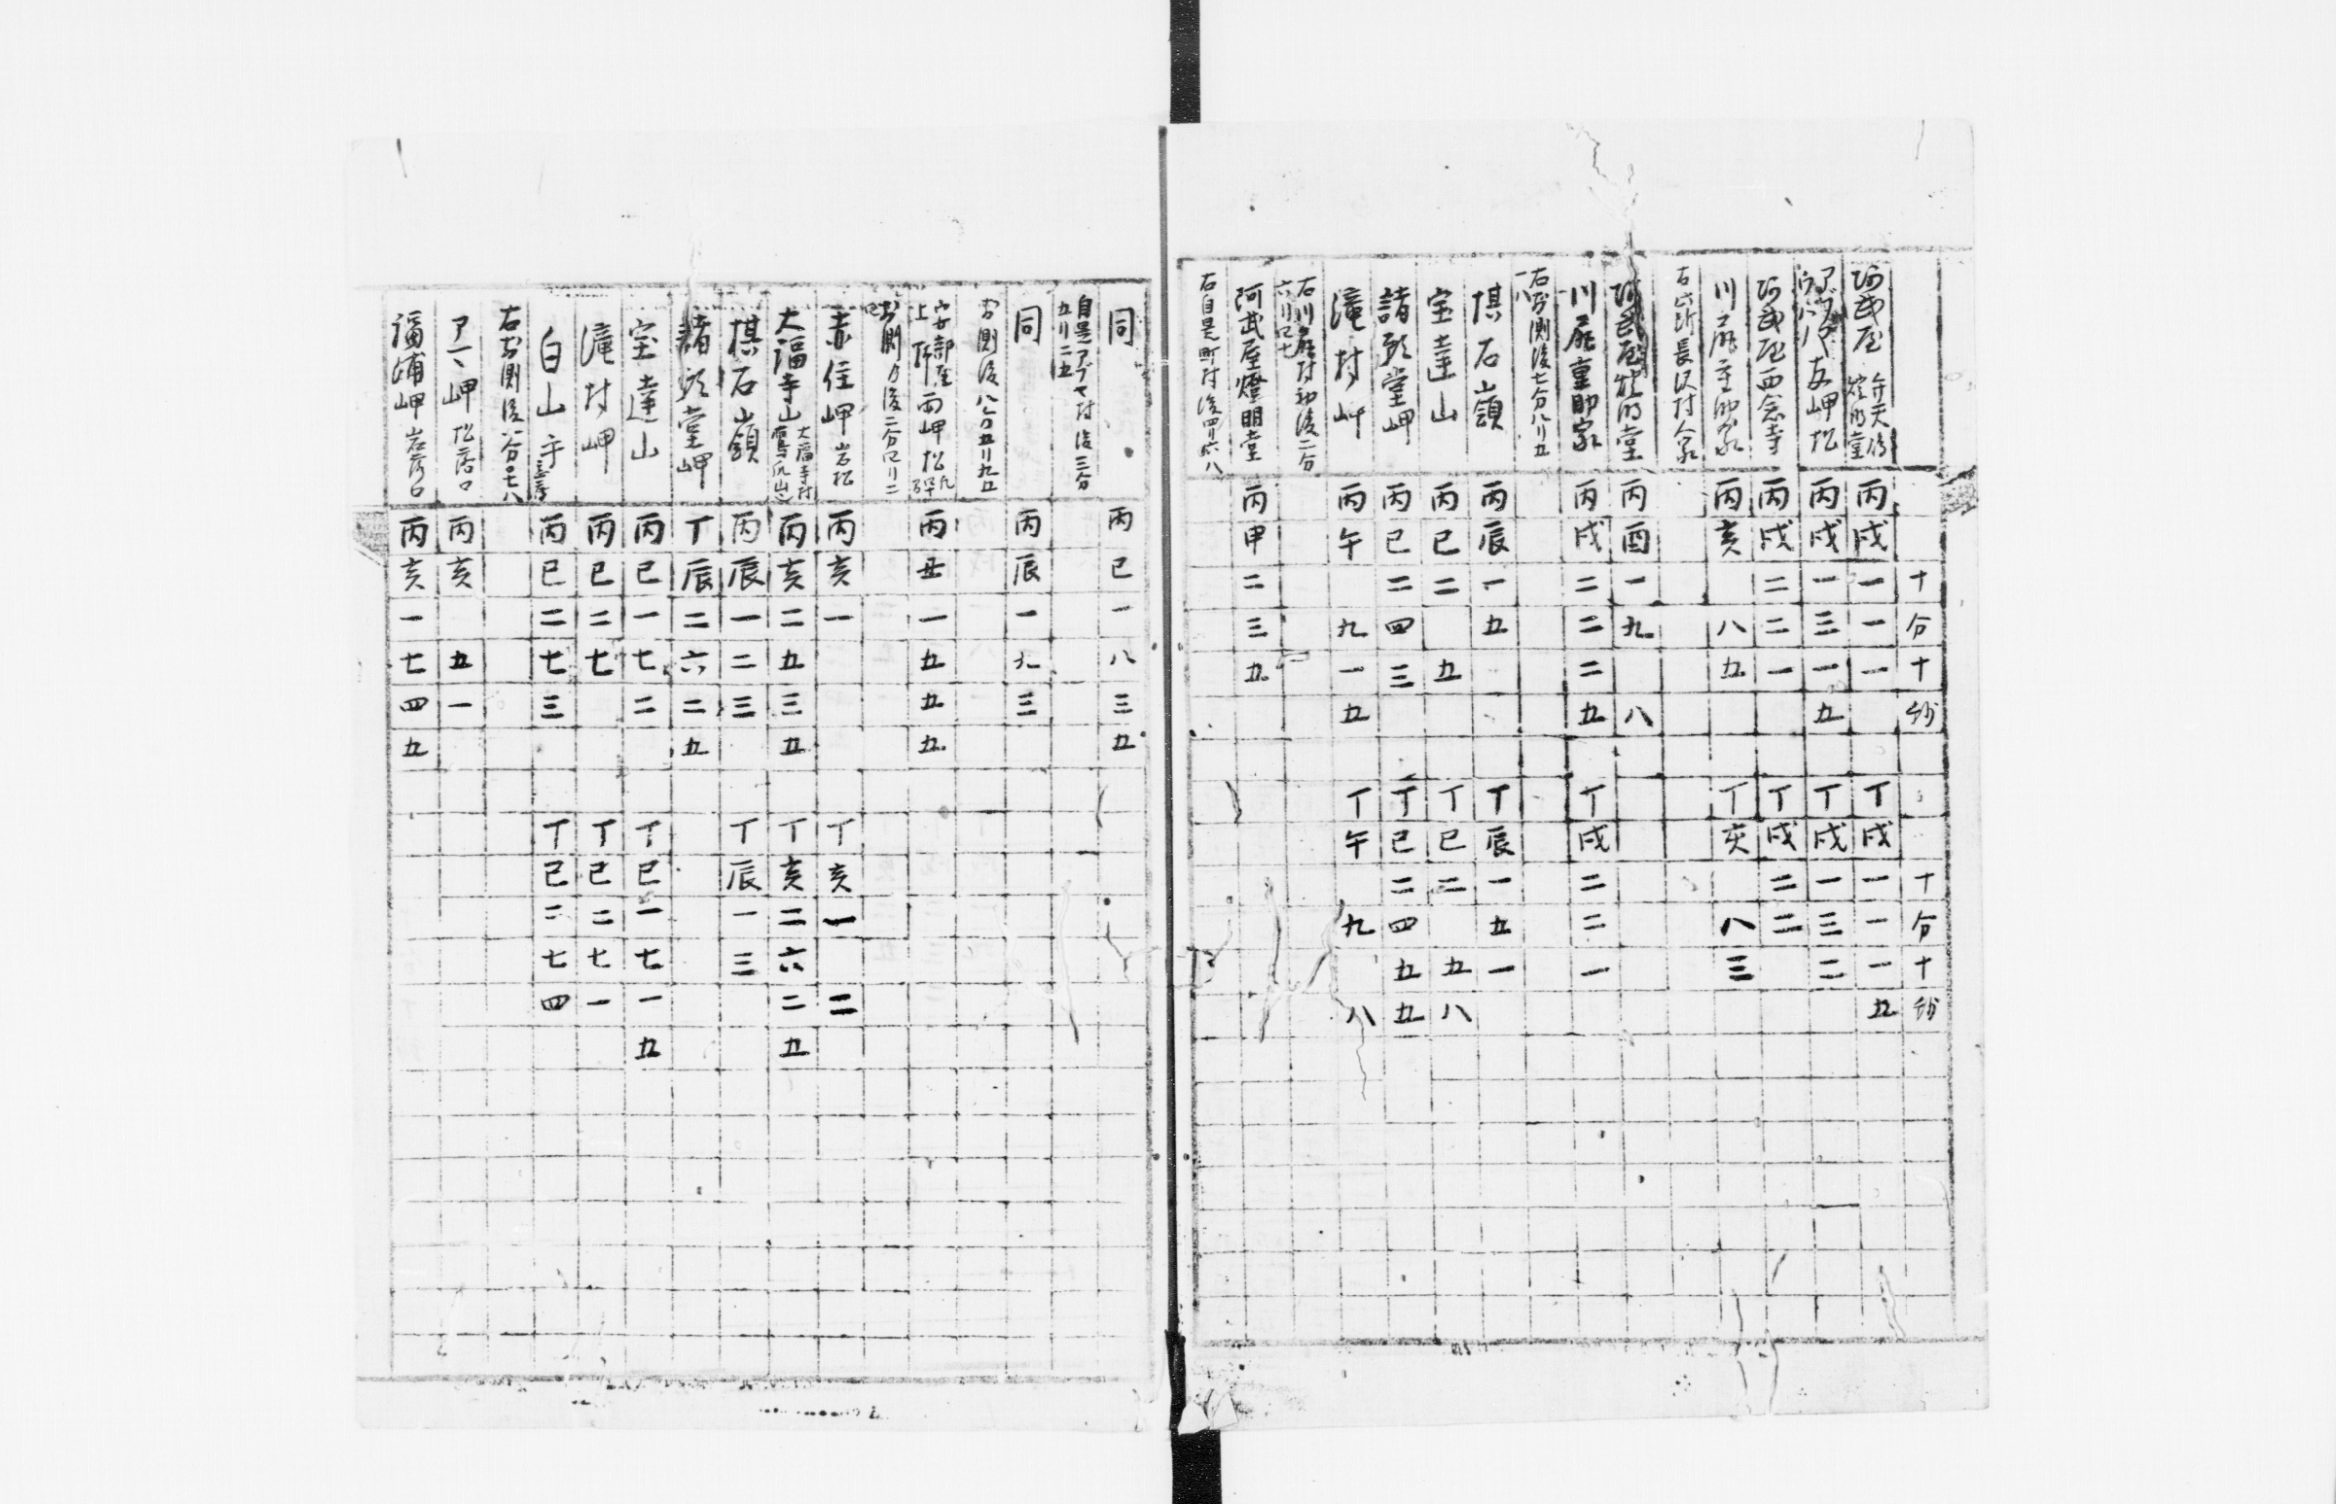 十分十秒 十分十秒
阿武屋 弁天島 燈明堂 丙戌一一一 丁戌一一一五
アブヤ 友岬松 丙戌一三一五 丁戌一三二
阿武屋西念寺 丙戌二二一 丁戌二二
川尻重助家 丙亥八五 丁亥八三
右此所長沢村人家
阿武屋燈明堂 丙酉一九八
川尻重助家 丙戌二二二五 丁戌二二一
右お側後七分八リ五
棋石山嶺 丙辰一五 丁辰一五一
宝達山 丙巳二五 丁巳二五八
諸頭堂岬 丙巳二四三 丁巳二四五五
滝村岬 丙午九一五 丁午九八
右川尻村初後二分六リ四七
阿武屋燈明堂 丙甲二三五
右自是町村後四リ六八
同 丙巳一八三五
自是アブヤ村後三分五リ二五
同 丙辰一九三
お側後八分五リ九五
安部屋 上野 西岬松 丙丑一五五五
お側ヨ後二分四リ二
赤住岬 岩松 丙亥一 丁亥一二
大福寺山 大福寺村 鷹爪山 丙亥二五三五 丁亥二六二五
棋石山嶺 丙辰一二三 丁辰一三
諸頭堂岬 丁辰二六二五
宝達山 丙巳一七二 丁巳一七一五
滝村岬 丙巳二七 丁巳二七一
白山 丙巳二七三 丁巳二七四
右お側後一分七八
岬 松 丙亥五一
福浦岬 岩 丙亥一七四五